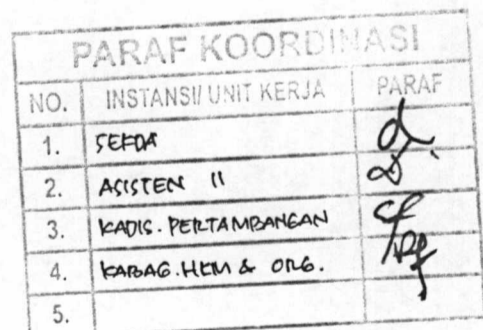 PARAF KOORDINASI
NO. INSTANSI/ UNIT KERJA PARAF
1. SEKDA
2. ASISTEN II
3. KADIS. PERTAMBANGAN
4. KABAG. HKM & ORG.
5.